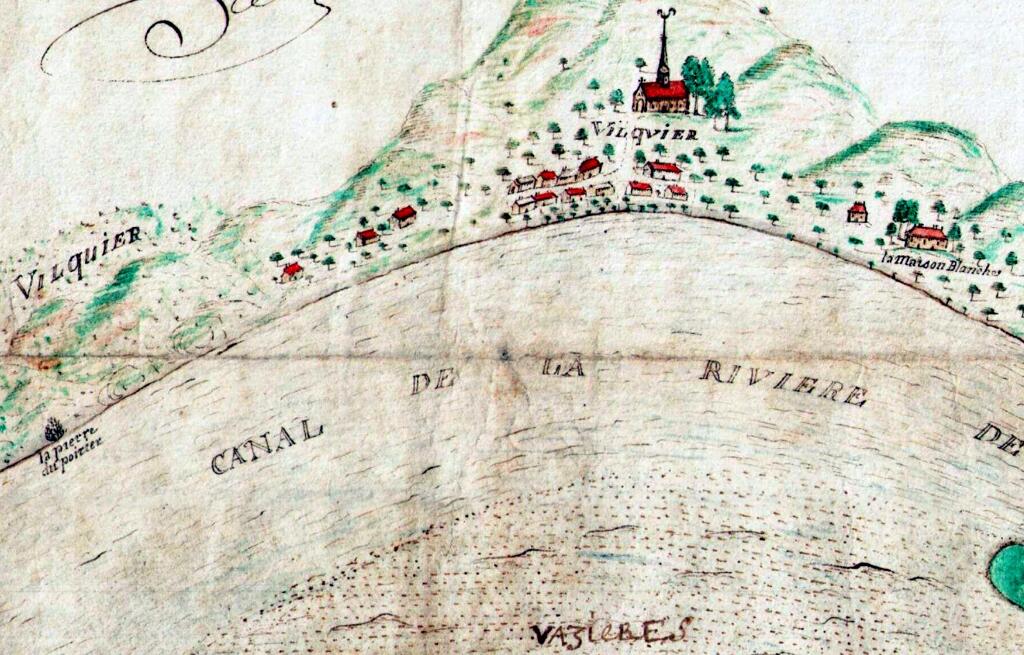 VILQVIER
VILQUIER
la Maison Blanche
DE LA RIVIERE
CANAL
DE
la pierre
du poirier
VAZIERES